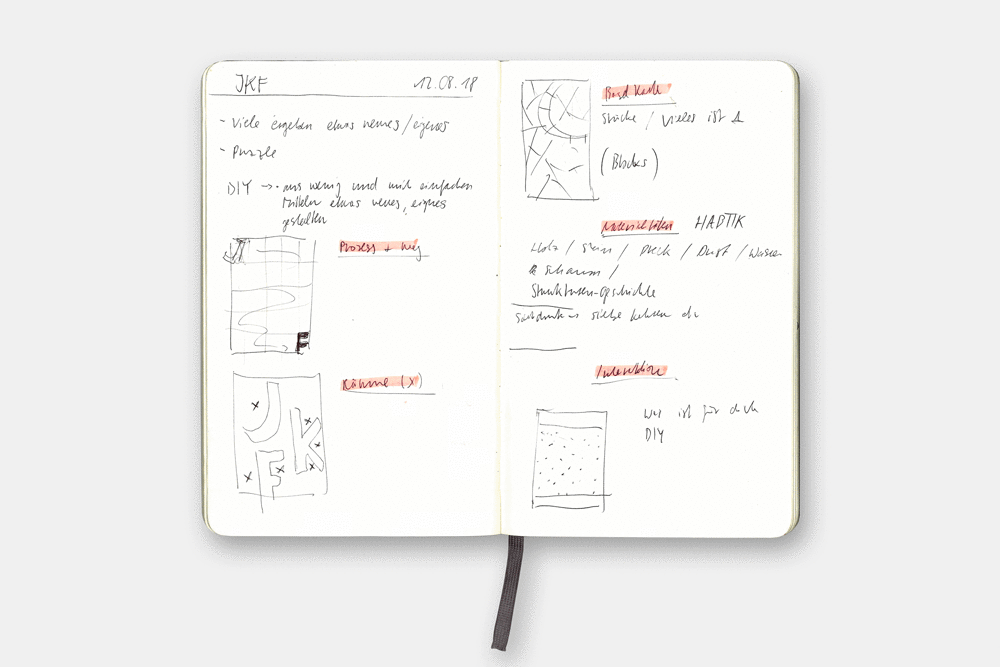 JKF 12.08.18
- Viele ergeben etwas neues/eigenes
- Puzzle
DIY → · aus wenig und mit einfachen
Mitteln etwas neues, eigenes
gestalten
Prozess + Weg
J
F
Räume (x)
J K F
Stücke / Vieles ist 1
(Blocks)
Materialitäten HAPTIK
Holz / Stein / / Duft / Wasser
& Schaum /
Strukturen-Geschichte
Interaktion
Was ist für dich
DIY